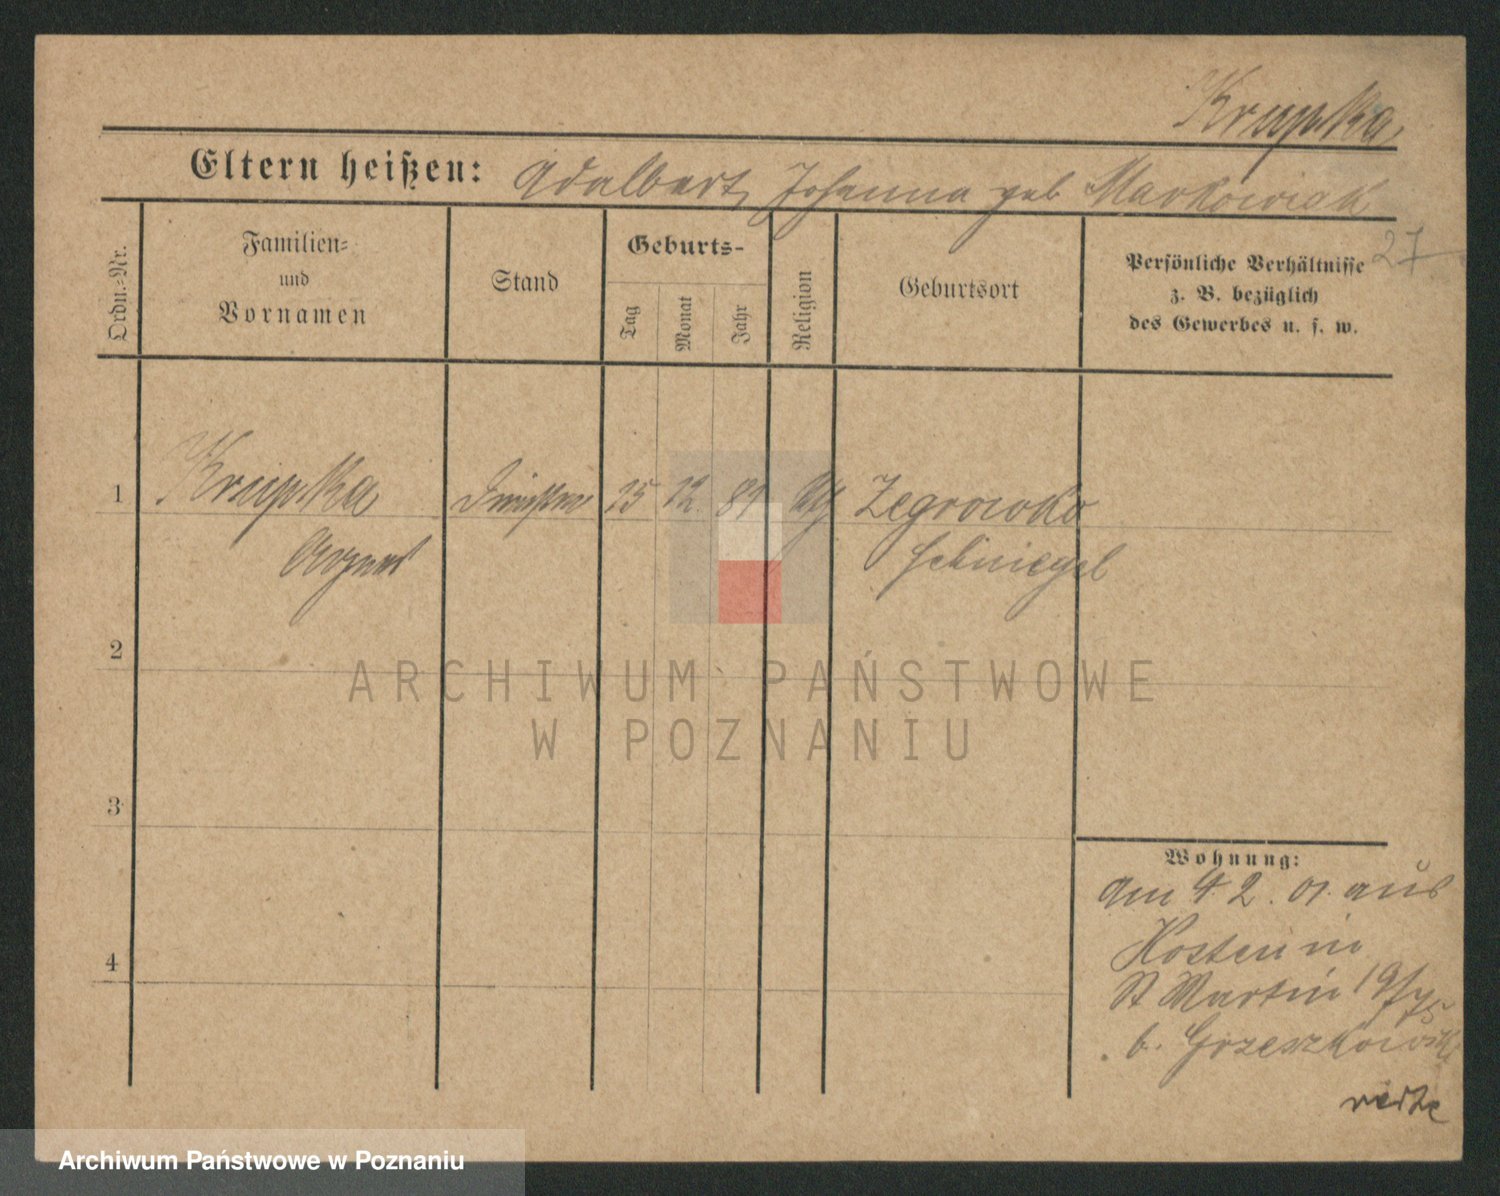 Krupka
Eltern heißen: Adalbert, Johanna geb Markowiak
27
Ordn.-Nr.
Familien-
und
Vornamen
Stand
Geburts-
Tag
Monat
Jahr
Religion
Geburtsort
Persönliche Verhältnisse
z. B. bezüglich
des Gewerbes u. s. w.
1 Krupka 12. 81 Zegrowko
Agnes Schmiegel
2
3
4
Wohnung:
am 4. 2. 01. aus
Kosten in
St Martin 19/
b. Grzeszkowiak
ARCHIWUM PAŃSTWOWE
W POZNANIU
Archiwum Państwowe w Poznaniu